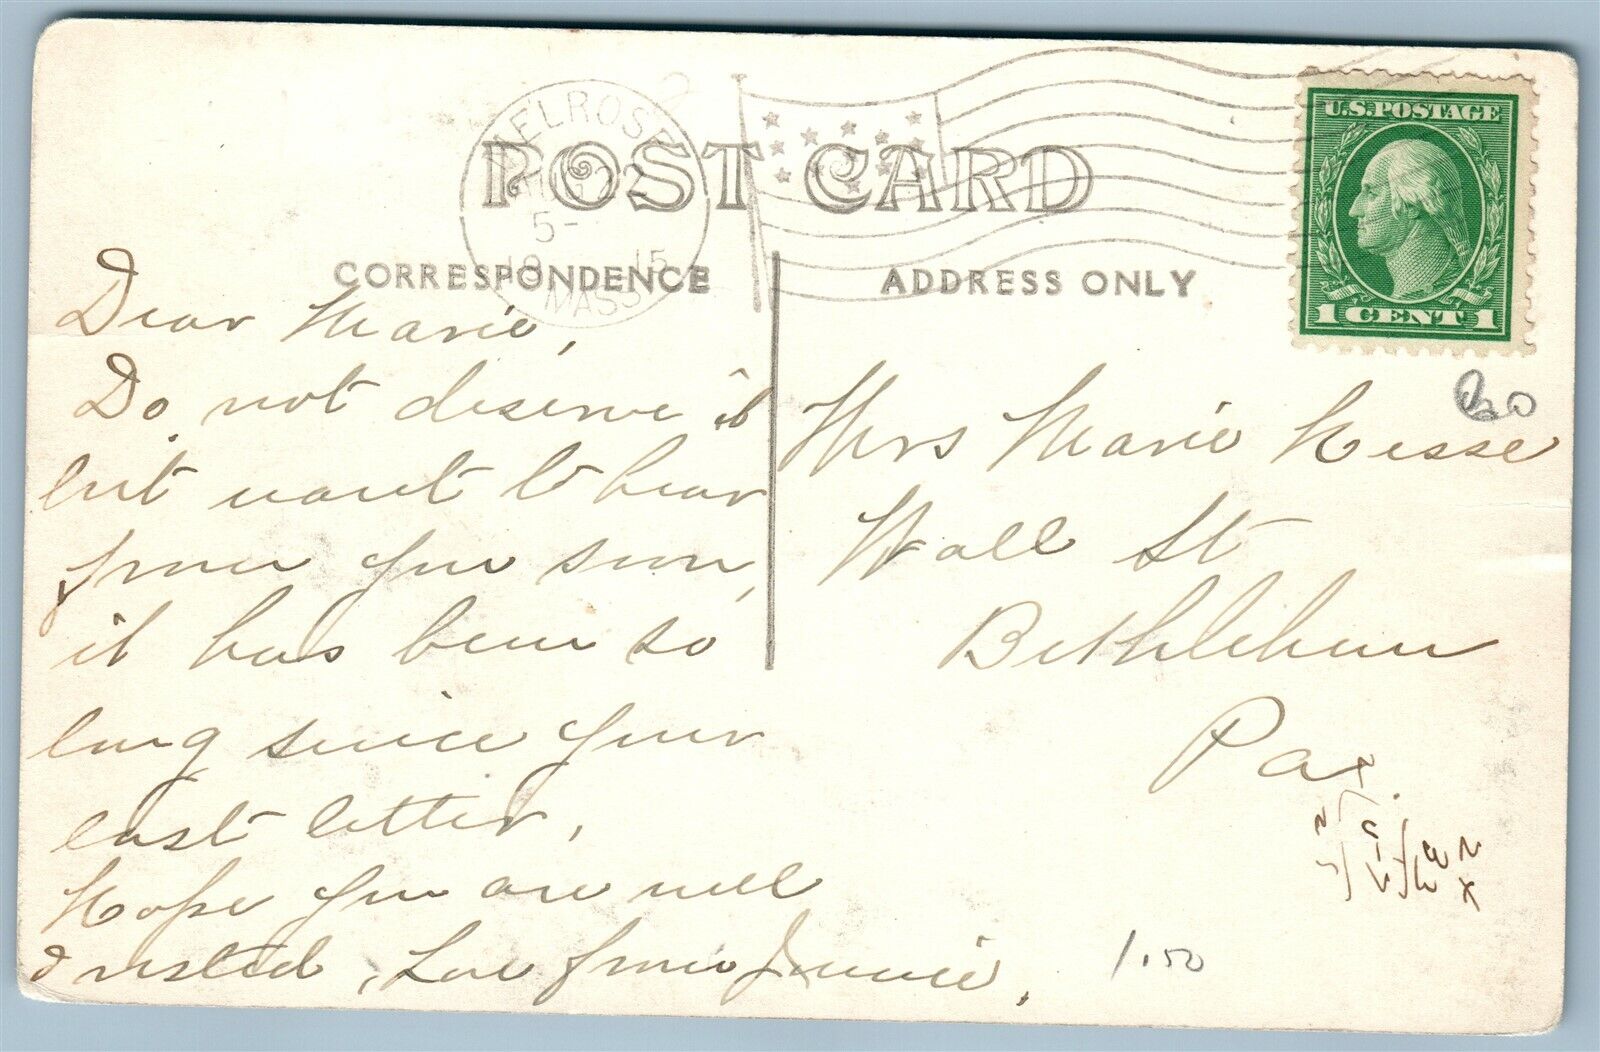 MELROSE
AUG 22
5-
1915
MASS.
POST CARD
CORRESPONDENCE
ADDRESS ONLY
U.S. POSTAGE
1 CENT 1
Dear Marie,
Do not deserve it
but want to hear
from you soon,
it has been so
long since your
last letter.
Hope you are well
& rested, Love from Jennie.
Mrs Marie Hesse
Wall St
Bethlehem
Pa.
1.50